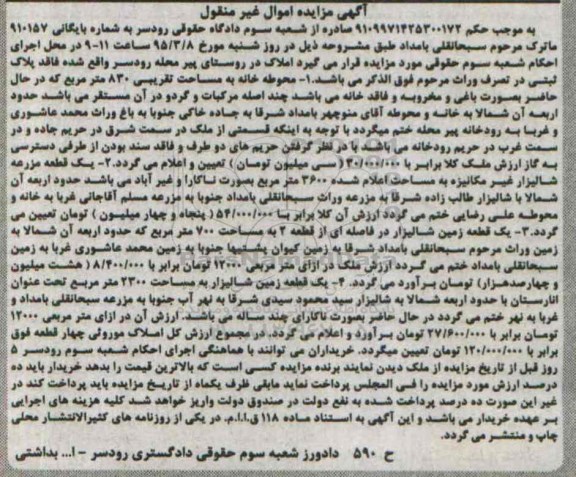 آگهی مزایده اموال غیر منقول
به موجب حکم ۹۱۰۹۹۷۱۴۲۵۳۰۰۱۷۲ صادره از شعبه سوم دادگاه حقوقی رودسر به شماره بایگانی ۹۱۰۱۵۷
ماترک مرحوم سبحانقلی بامداد طبق مشروحه ذیل در روز شنبه مورخ ۹۵/۳/۸ ساعت ۱۱-۹ در محل اجرای
احکام شعبه سوم حقوقی مورد مزایده قرار می گیرد املاک در روستای پیر محله رودسر واقع شده فاقد پلاک
ثبتی در تصرف وراث مرحوم فوق الذکر می باشد.۱- محوطه خانه به مساحت تقریبی ۸۳۰ متر مربع که در حال
حاضر بصورت باغی و مخروبه و فاقد خانه می باشد چند اصله مرکبات و گردو در آن مستقر می باشد حدود
اربعه آن شمالا به خانه و محوطه آقای منوچهر بامداد شرقا به جاده خاکی جنوبا به باغ وراث محمد عاشوری
و غربا به رودخانه پیر محله ختم میگردد با توجه به اینکه قسمتی از ملک در سمت شرق در حریم جاده و در
سمت غرب در حریم رودخانه می باشد، با در نظر گرفتن حریم های دو طرف و فاقد سند بودن از طرفی دسترسی
به گاز ارزش ملک کلا برابر با ۳۰/۰۰۰/۰۰۰ (سی میلیون تومان) تعیین و اعلام می گردد.۲- یک قطعه مزرعه
شالیزار غیر مکانیزه به مساحت اعلام شده ۳۶۰۰ متر مربع بصورت ناکارا و غیر آباد می باشد حدود اربعه آن
شمالا با شالیزار طالب زاده شرقا به مزرعه وراث سبحانقلی بامداد جنوبا به مزرعه مسلم آقاجانی غربا به خانه و
محوطه علی رضایی ختم می گردد ارزش آن کلا برابر با ۵۴/۰۰۰/۰۰۰ ( پنجاه و چهار میلیون ) تومان تعیین می
گردد.۳- یک قطعه زمین شالیزار در فاصله ای از قطعه ۲ به مساحت ۷۰۰ متر مربع که حدود اربعه آن شمالا به
زمین وراث مرحوم سبحانقلی بامداد شرقا به زمین کیوان پشتیبها جنوبا به زمین محمد عاشوری غربا به زمین
سبحانقلی بامداد ختم می گردد ارزش ملک در ازای متر مربعی ۱۲۰۰۰ تومان برابر با ۸/۴۰۰/۰۰۰ ( هشت میلیون
و چهارصدهزار) تومان برآورد می گردد. ۴- یک قطعه زمین شالیزار به مساحت ۲۳۰۰ متر مربع تحت عنوان
انارستان با حدود اربعه شمالا به شالیزار سید محمود سیدی شرقا به نهر آب جنوبا به مزرعه سبحانقلی بامداد و
غربا به نهر ختم می گردد در حال حاضر بصورت ناکارای چند ساله می باشد. ارزش آن در ازای متر مربعی ۱۲۰۰۰
تومان برابر با ۲۷/۶۰۰/۰۰۰ تومان برآورد و اعلام می گردد، در مجموع ارزش کل املاک موروثی چهار قطعه فوق
برابر با ۱۲۰/۰۰۰/۰۰۰ تومان تعیین میگردد. خریداران می توانند با هماهنگی اجرای احکام شعبه سوم رودسر ۵
روز قبل از تاریخ مزایده از ملک دیدن نمایند برنده مزایده کسی است که بالاترین قیمت را بدهد خریدار باید ده
درصد ارزش مورد مزایده را فی المجلس پرداخت نماید مابقی ظرف یکماه از تاریخ مزایده باید پرداخت کند در
غیر این صورت ده درصد پرداخت شده به نفع دولت در صندوق دولت واریز خواهد شد کلیه هزینه های اجرایی
بر عهده خریدار می باشد و این آگهی به استناد ماده ۱۱۸ ق.ا.ا.م. در یکی از روزنامه های کثیرالانتشار محلی
چاپ و منتشر می گردد.
ح ۵۹۰ دادورز شعبه سوم حقوقی دادگستری رودسر - ا... بداشتی